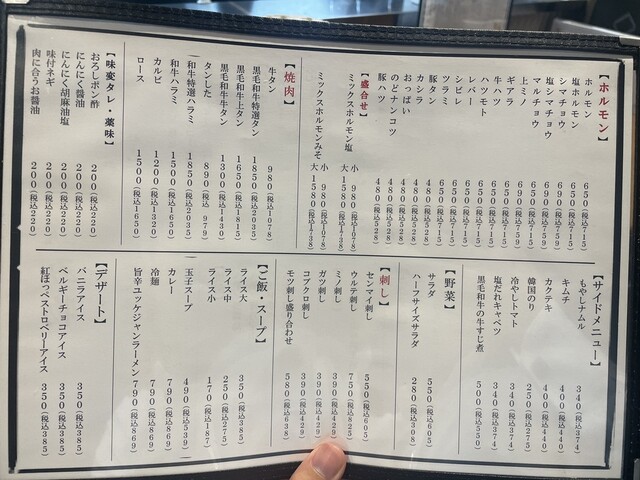 【ホルモン】
ホルモン 650(税込715)
塩ホルモン 650(税込715)
シマチョウ 690(税込759)
塩シマチョウ 690(税込759)
マルチョウ 650(税込715)
上ミノ 690(税込759)
ギアラ 650(税込715)
牛ハツ 650(税込715)
ハツモト 650(税込715)
レバー 650(税込715)
シビレ 650(税込715)
ツラミ 650(税込715)
豚タン 480(税込528)
カシラ 480(税込528)
おっぱい 480(税込528)
のどナンコツ 480(税込528)
豚ハツ 480(税込528)
【盛合せ】
ミックスホルモン塩 小 980(税込1078)
大 1580(税込1738)
ミックスホルモンみそ 小 980(税込1078)
大 1580(税込1738)
【焼肉】
牛タン 980(税込1078)
黒毛和牛特選タン 1850(税込2035)
黒毛和牛上タン 1650(税込1815)
黒毛和牛牛タン 1300(税込1430)
タンした 890(税込 979)
和牛特選ハラミ 1850(税込2035)
和牛ハラミ 1500(税込1650)
カルビ 1200(税込1320)
ロース 1500(税込1650)
【味変タレ・薬味】
おろしポン酢 200(税込220)
にんにく醤油 200(税込220)
にんにく胡麻油塩 200(税込220)
味付ネギ 200(税込220)
肉に合うお醤油 200(税込220)
【サイドメニュー】
もやしナムル 340(税込374)
キムチ 400(税込440)
カクテキ 400(税込440)
韓国のり 250(税込275)
冷やしトマト 340(税込374)
塩だれキャベツ 340(税込374)
黒毛和牛の牛すじ煮 500(税込550)
【野菜】
サラダ 550(税込605)
ハーフサイズサラダ 280(税込308)
【刺し】
センマイ刺し 550(税込605)
ウルテ刺し 750(税込825)
ミノ刺し 390(税込429)
ガツ刺し 390(税込429)
コブクロ刺し 390(税込429)
モツ刺し盛り合わせ 580(税込638)
【ご飯・スープ】
ライス大 350(税込385)
ライス中 250(税込275)
ライス小 170(税込187)
玉子スープ 490(税込539)
カレー 790(税込869)
冷麺 790(税込869)
旨辛ユッケジャンラーメン 790(税込869)
【デザート】
バニラアイス 350(税込385)
ベルギーチョコアイス 350(税込385)
紅ほっぺストロベリーアイス 350(税込385)